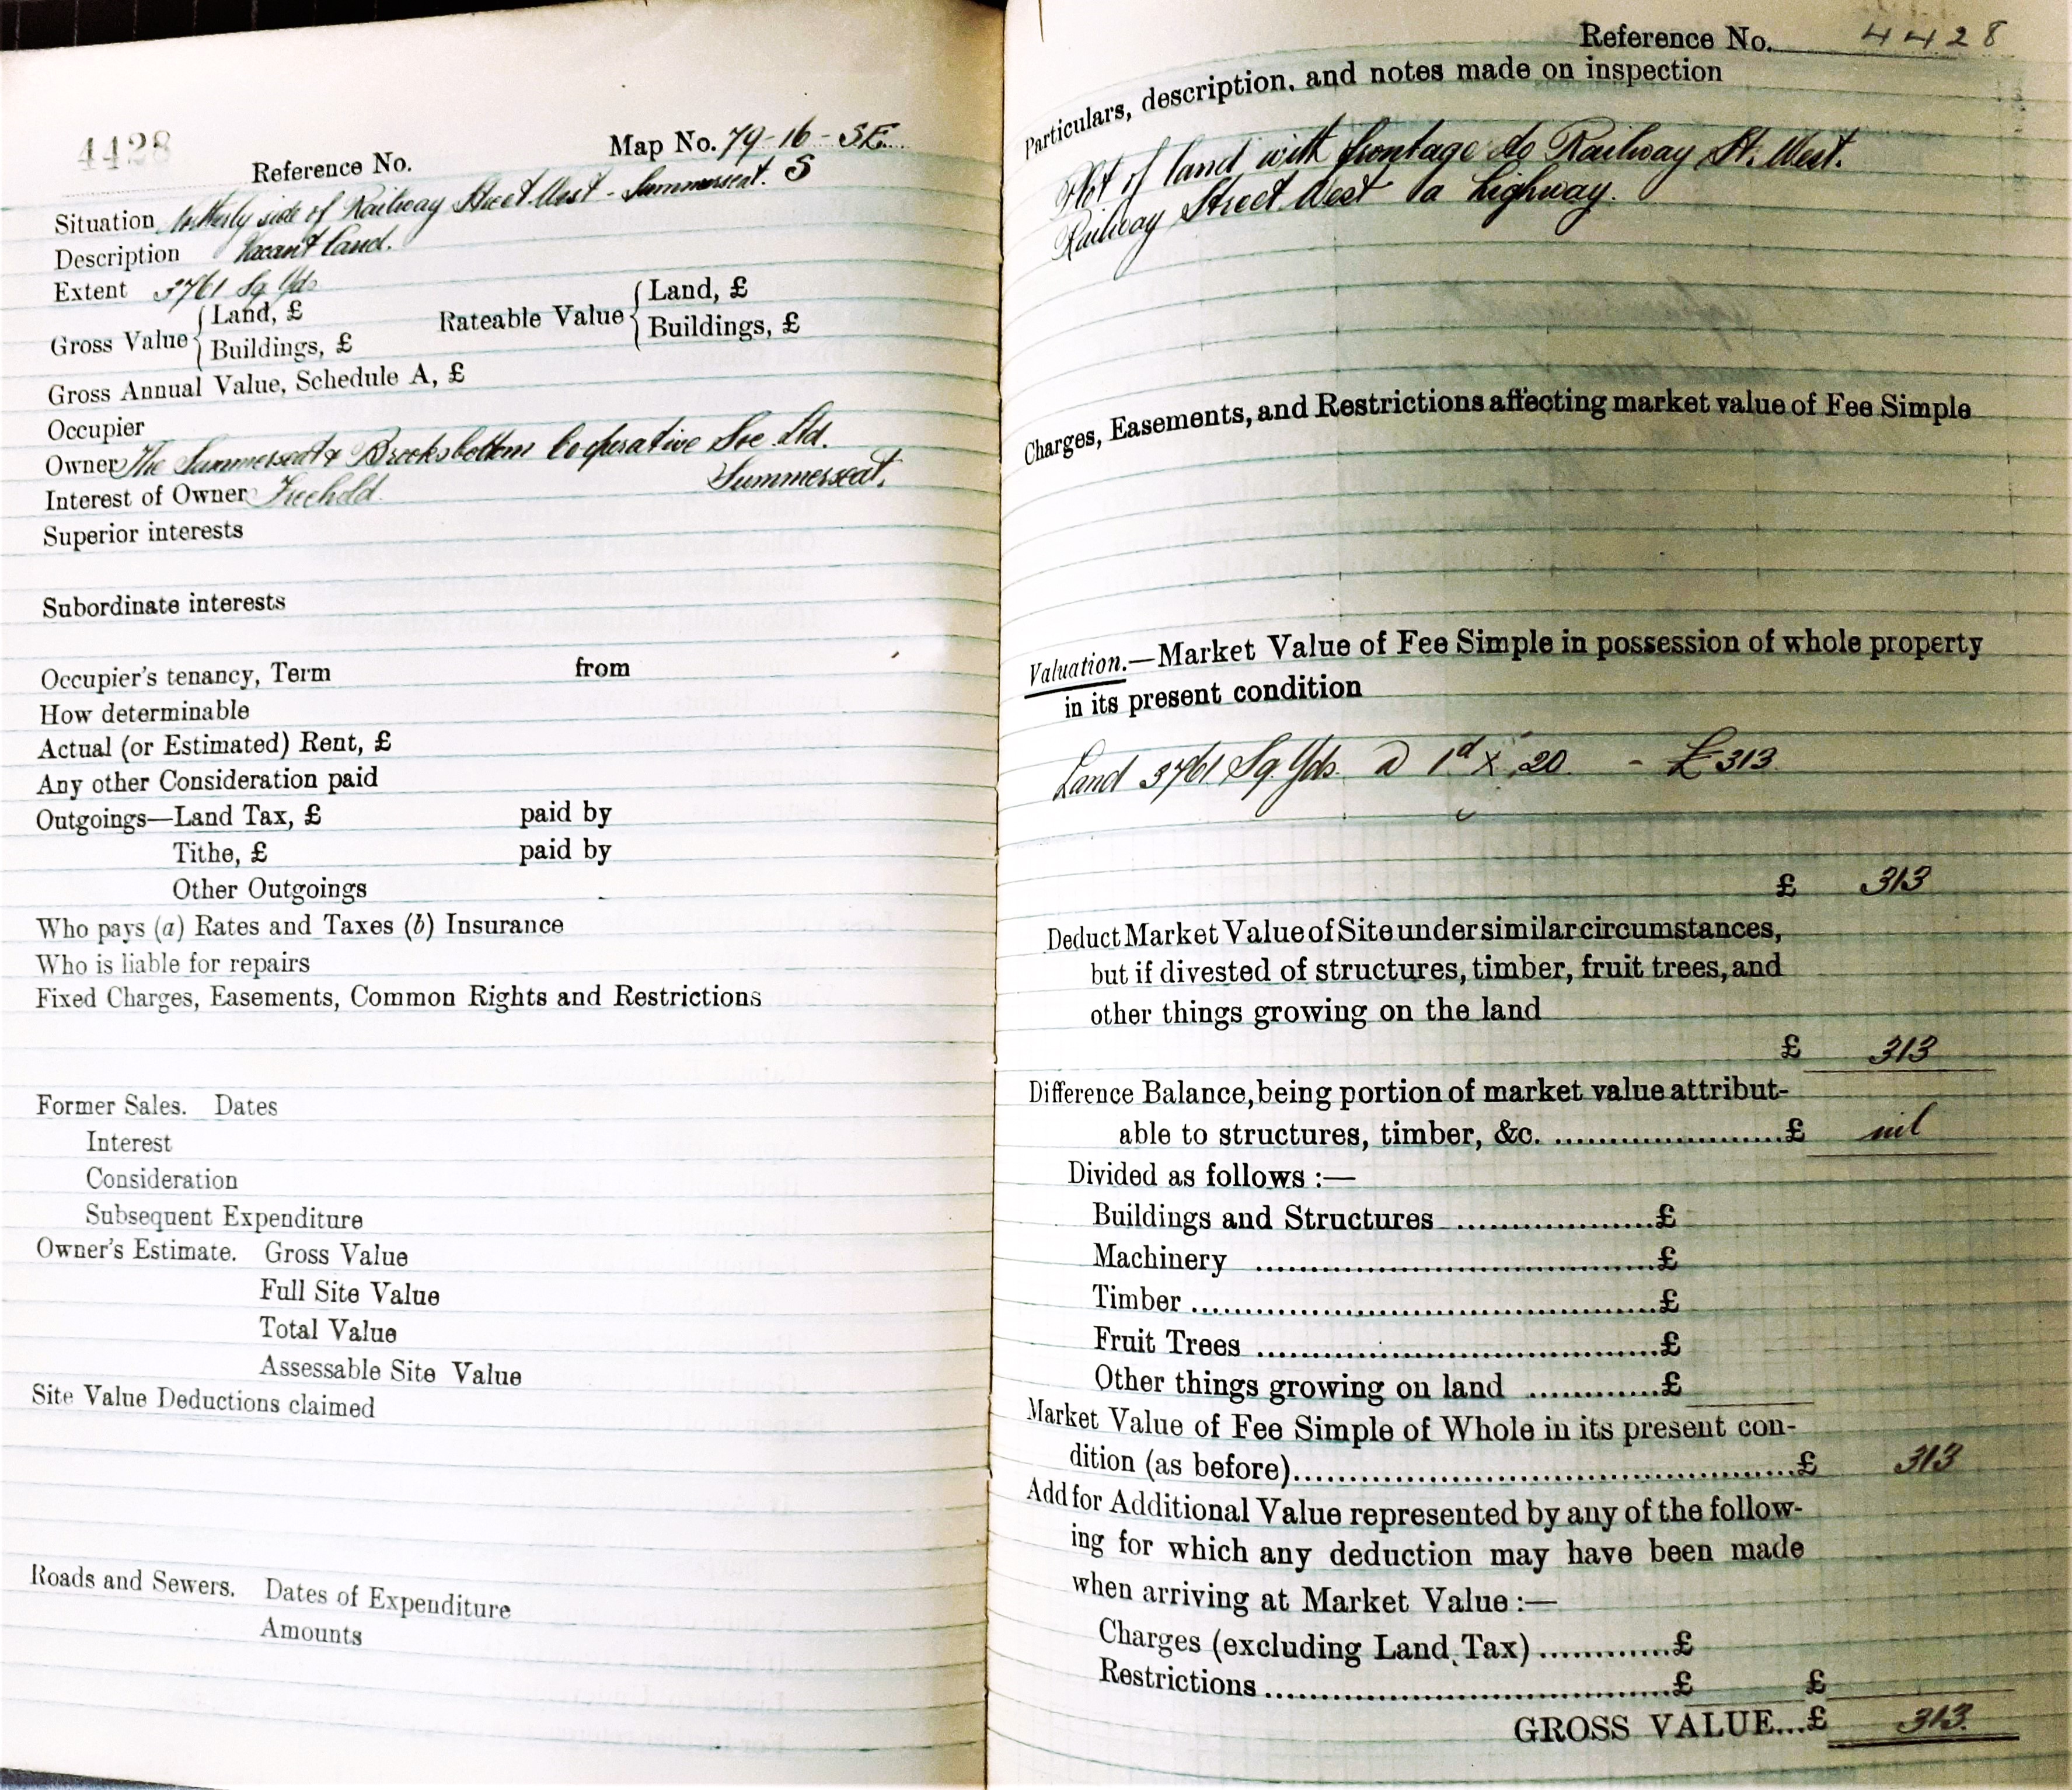 4428
Reference No.
Map No. 79-16-S.E.
Situation Northerly side of Railway Street West - Summerseat. S
Description Vacant land.
Extent 3761 Sq Yds
Gross Value { Land, £
Buildings, £
Rateable Value { Land, £
Buildings, £
Gross Annual Value, Schedule A, £
Occupier
Owner The Summerseat & Brooksbottom Co operative Soc. Ltd.
Summerseat.
Interest of Owner Freehold
Superior interests
Subordinate interests
Occupier's tenancy, Term from
How determinable
Actual (or Estimated) Rent, £
Any other Consideration paid
Outgoings—Land Tax, £ paid by
Tithe, £ paid by
Other Outgoings
Who pays (a) Rates and Taxes (b) Insurance
Who is liable for repairs
Fixed Charges, Easements, Common Rights and Restrictions
Former Sales. Dates
Interest
Consideration
Subsequent Expenditure
Owner's Estimate. Gross Value
Full Site Value
Total Value
Assessable Site Value
Site Value Deductions claimed
Roads and Sewers. Dates of Expenditure
Amounts
Reference No. 4428
Particulars, description, and notes made on inspection
Plot of land with frontage to Railway St. West.
Railway Street West a highway.
Charges, Easements, and Restrictions affecting market value of Fee Simple
Valuation.—Market Value of Fee Simple in possession of whole property
in its present condition
Land 3761 Sq. Yds. @ 1d x 20 - £313
£ 313
Deduct Market Value of Site under similar circumstances,
but if divested of structures, timber, fruit trees, and
other things growing on the land
£ 313
Difference Balance, being portion of market value attribut-
able to structures, timber, &c. ......................£ nil
Divided as follows :—
Buildings and Structures ...................£
Machinery ......................................£
Timber ............................................£
Fruit Trees ......................................£
Other things growing on land ............£
Market Value of Fee Simple of Whole in its present con-
dition (as before)..................................................£ 313
Add for Additional Value represented by any of the follow-
ing for which any deduction may have been made
when arriving at Market Value :—
Charges (excluding Land Tax)............£
Restrictions.......................................£ £
GROSS VALUE...£ 313.